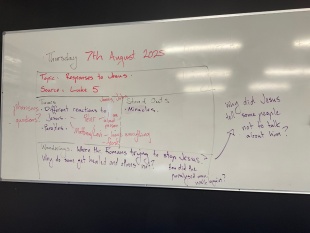 Thursday 7th August 2025
Topic: Responses to Jesus.
Source: Luke 5
Learn
Different reactions to
Jesus
Miracles.
questions?
everything
Wonderings: Where the Romans trying to stop Jesus?
Why do some get healed and others not?
How did the
paralysed man
walk again?
Why did Jesus
tell some people
not to talk
about him?